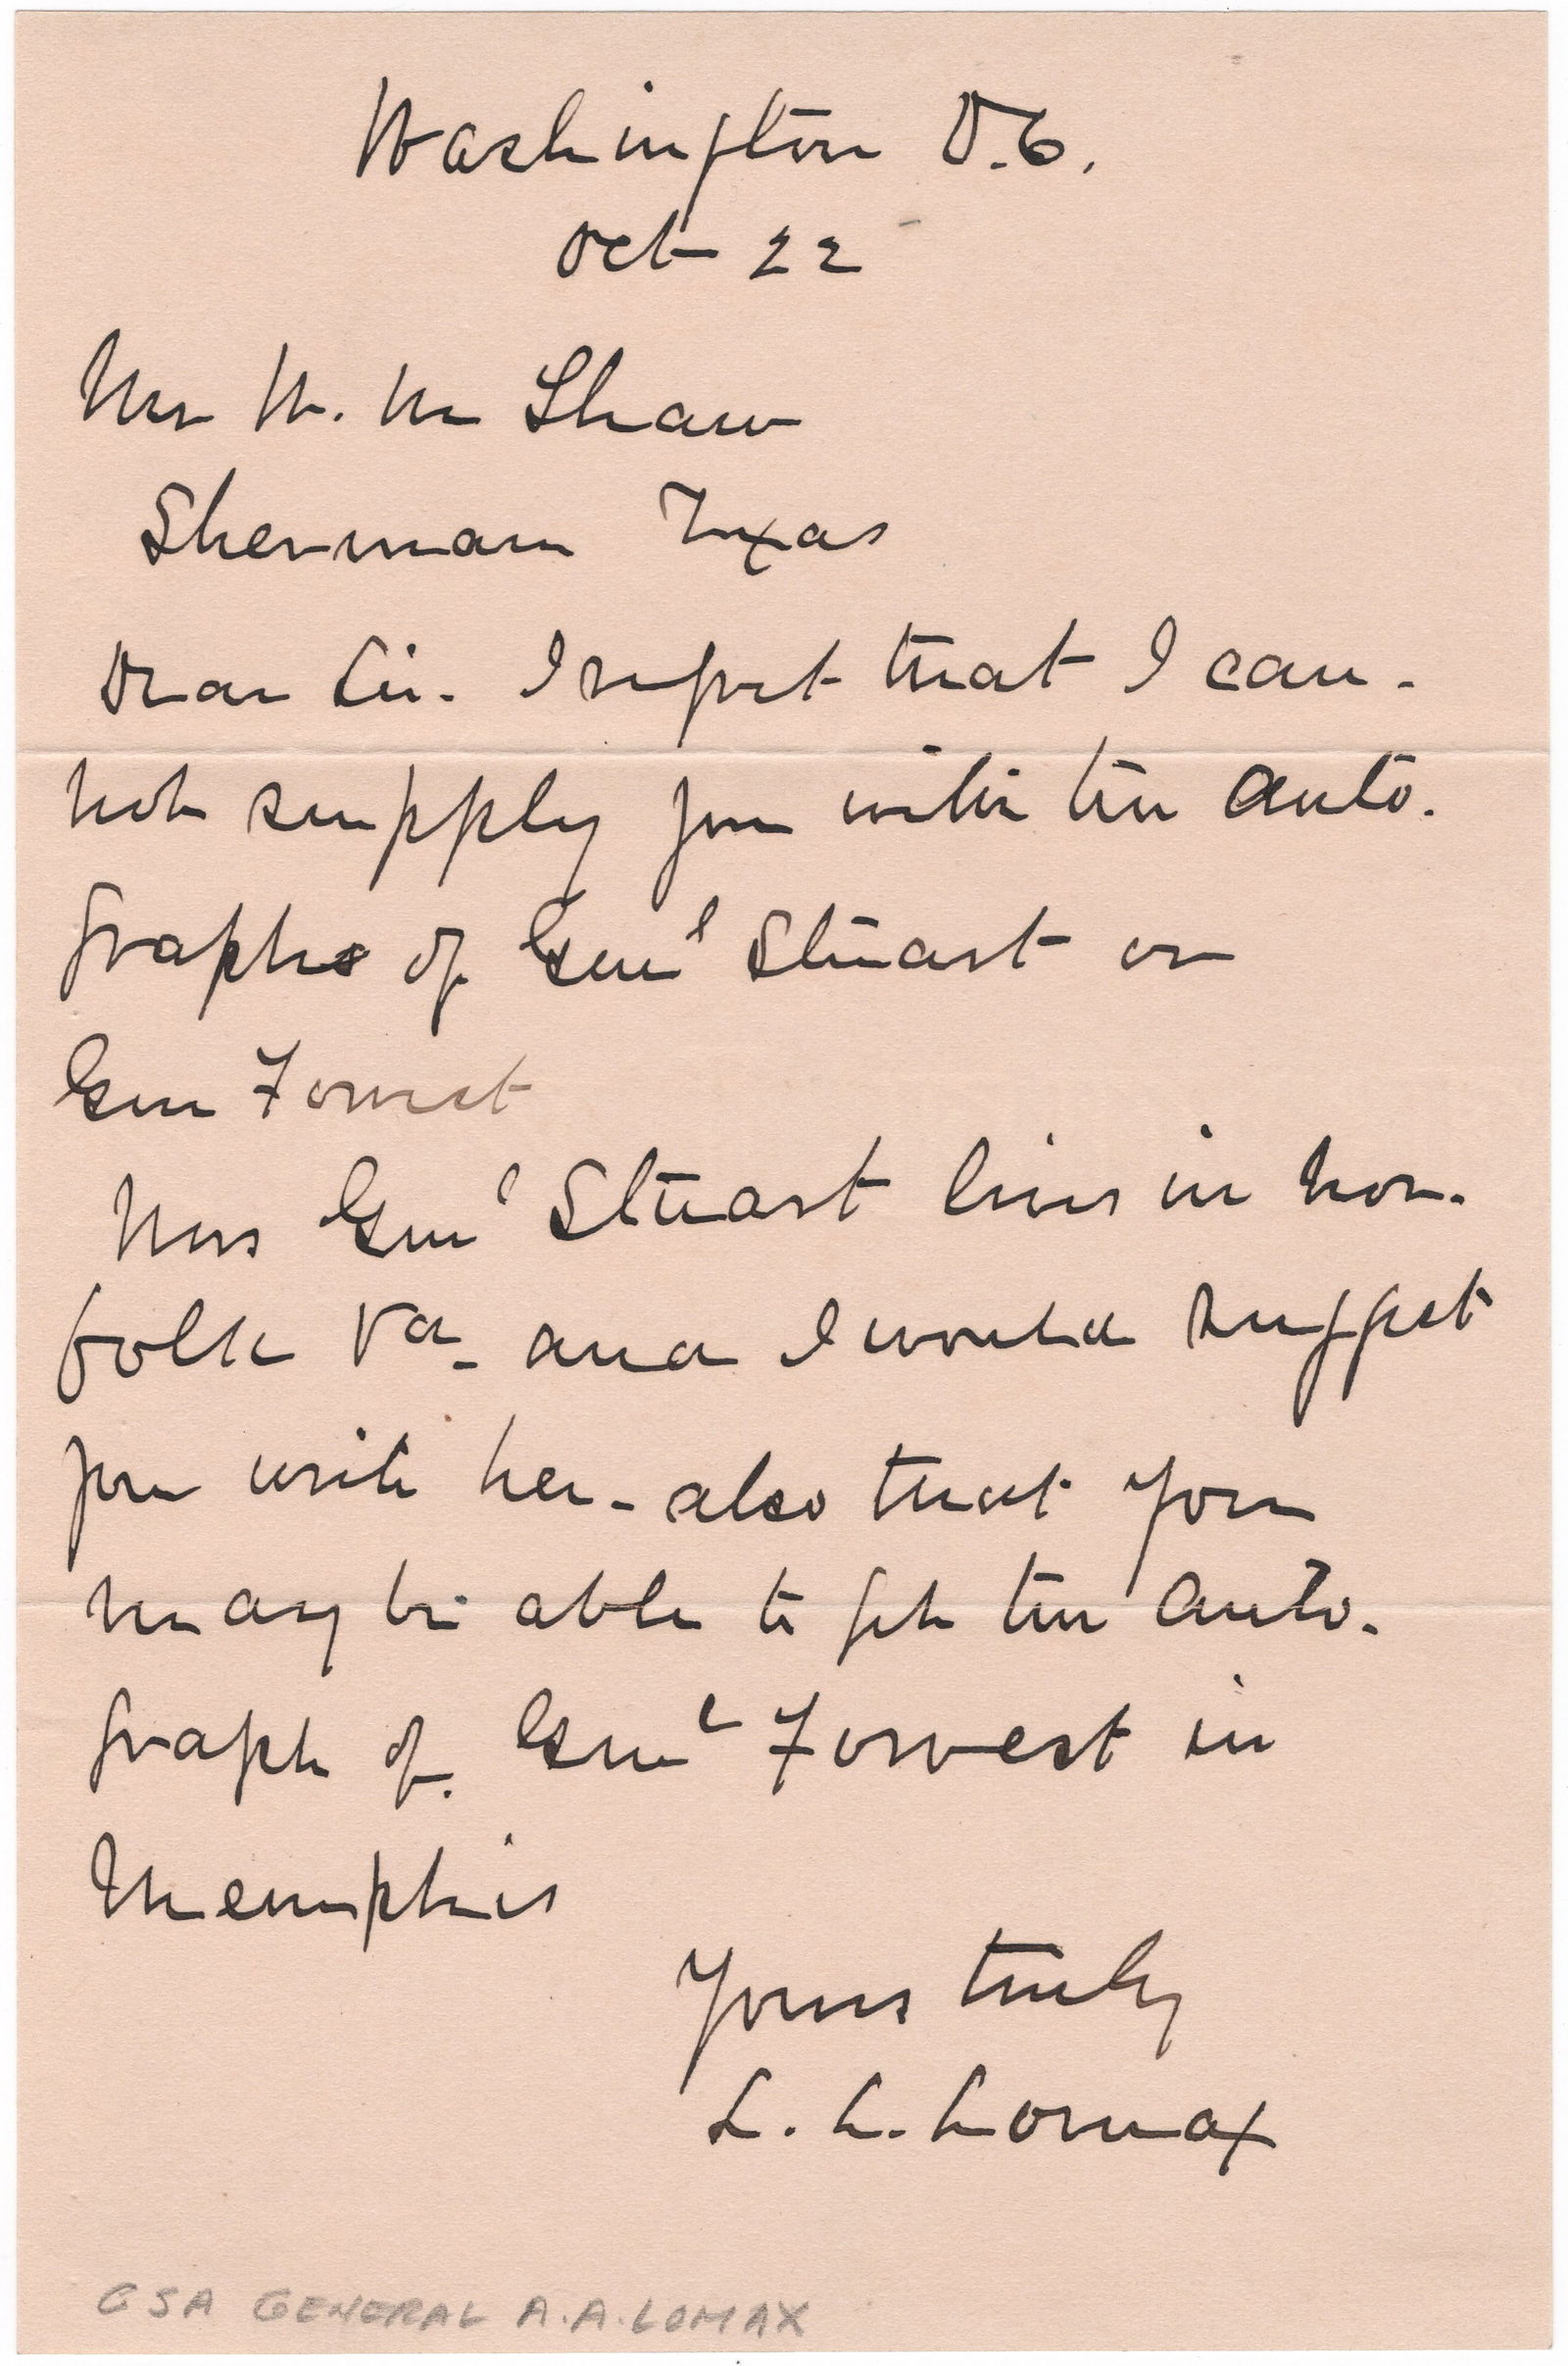 Washington D.C.
Oct 22
Mr W. M Shaw
Sherman Texas
Dear Sir. I regret that I can-
not supply you with the auto-
graphs of Genl Stuart or
Gen Forrest
Mrs Genl Stuart lives in Nor-
folk Va- and I would suggest
you write her - also that you
may be able to get the auto-
graph of Genl Forrest in
Memphis
Yours truly
L. L. Lomax
CSA GENERAL A.A. LOMAX